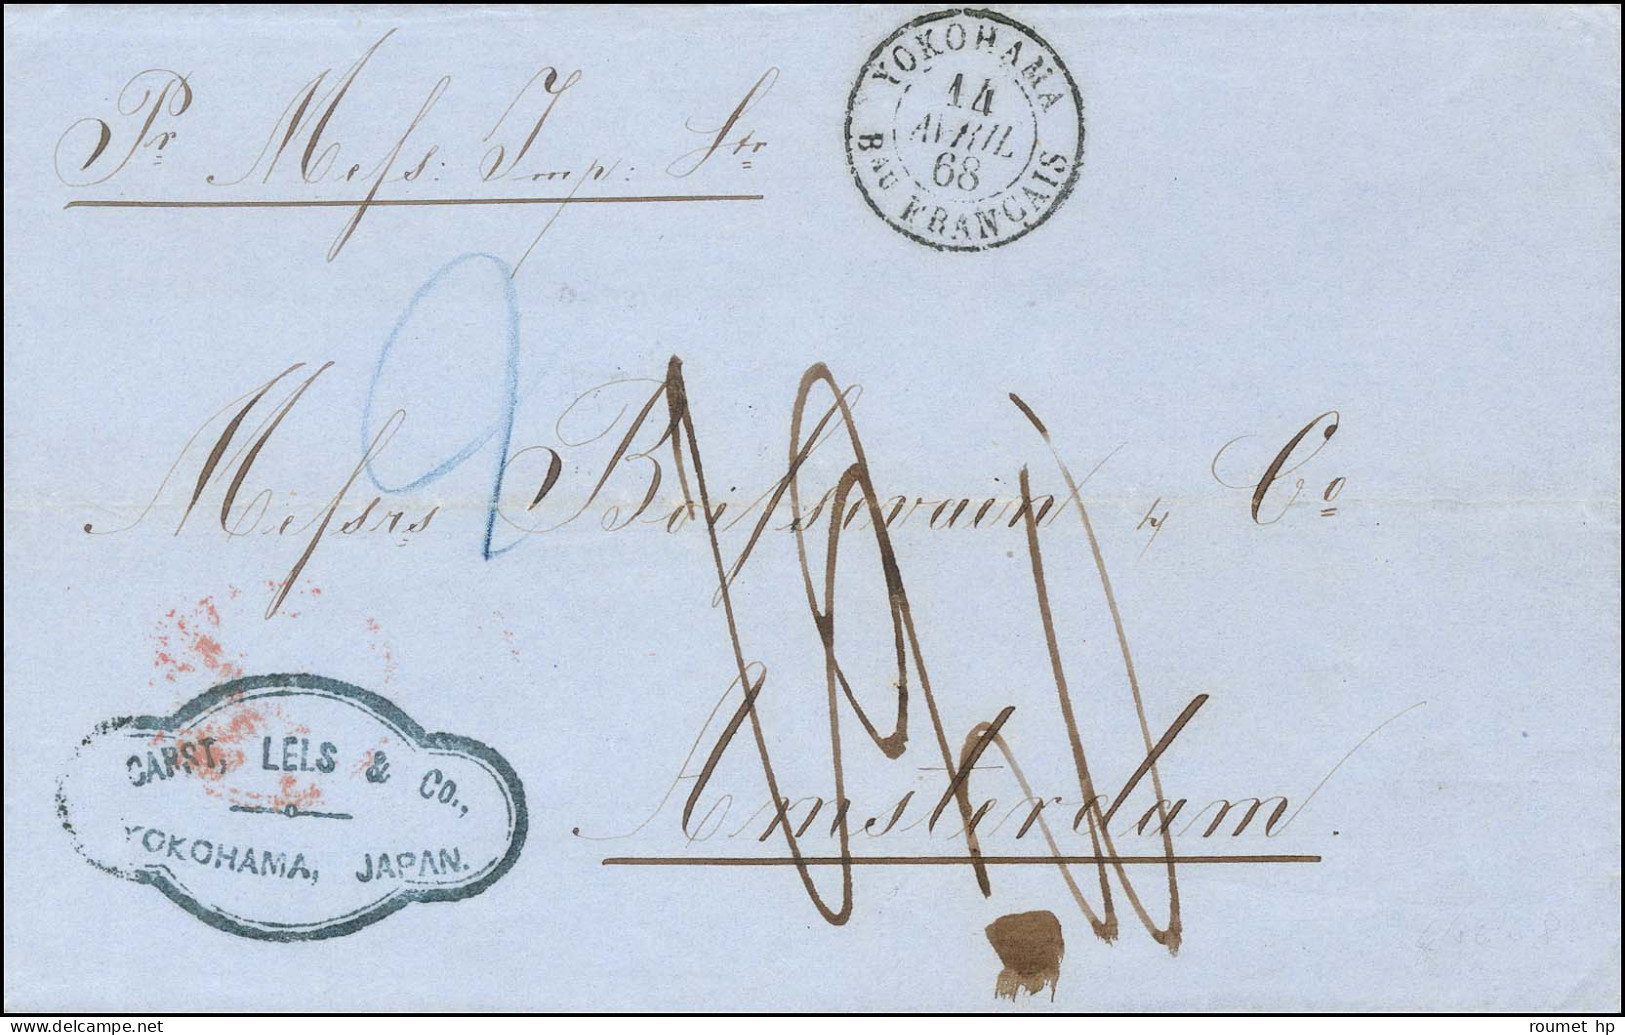 Pr Mess: Imp: Str
YOKOHAMA
14
AVRIL
68
Bau FRANCAIS
Messrs Boissevain & Co
Amsterdam.
CARST, LELS & Co.,
YOKOHAMA, JAPAN.
roumet hp